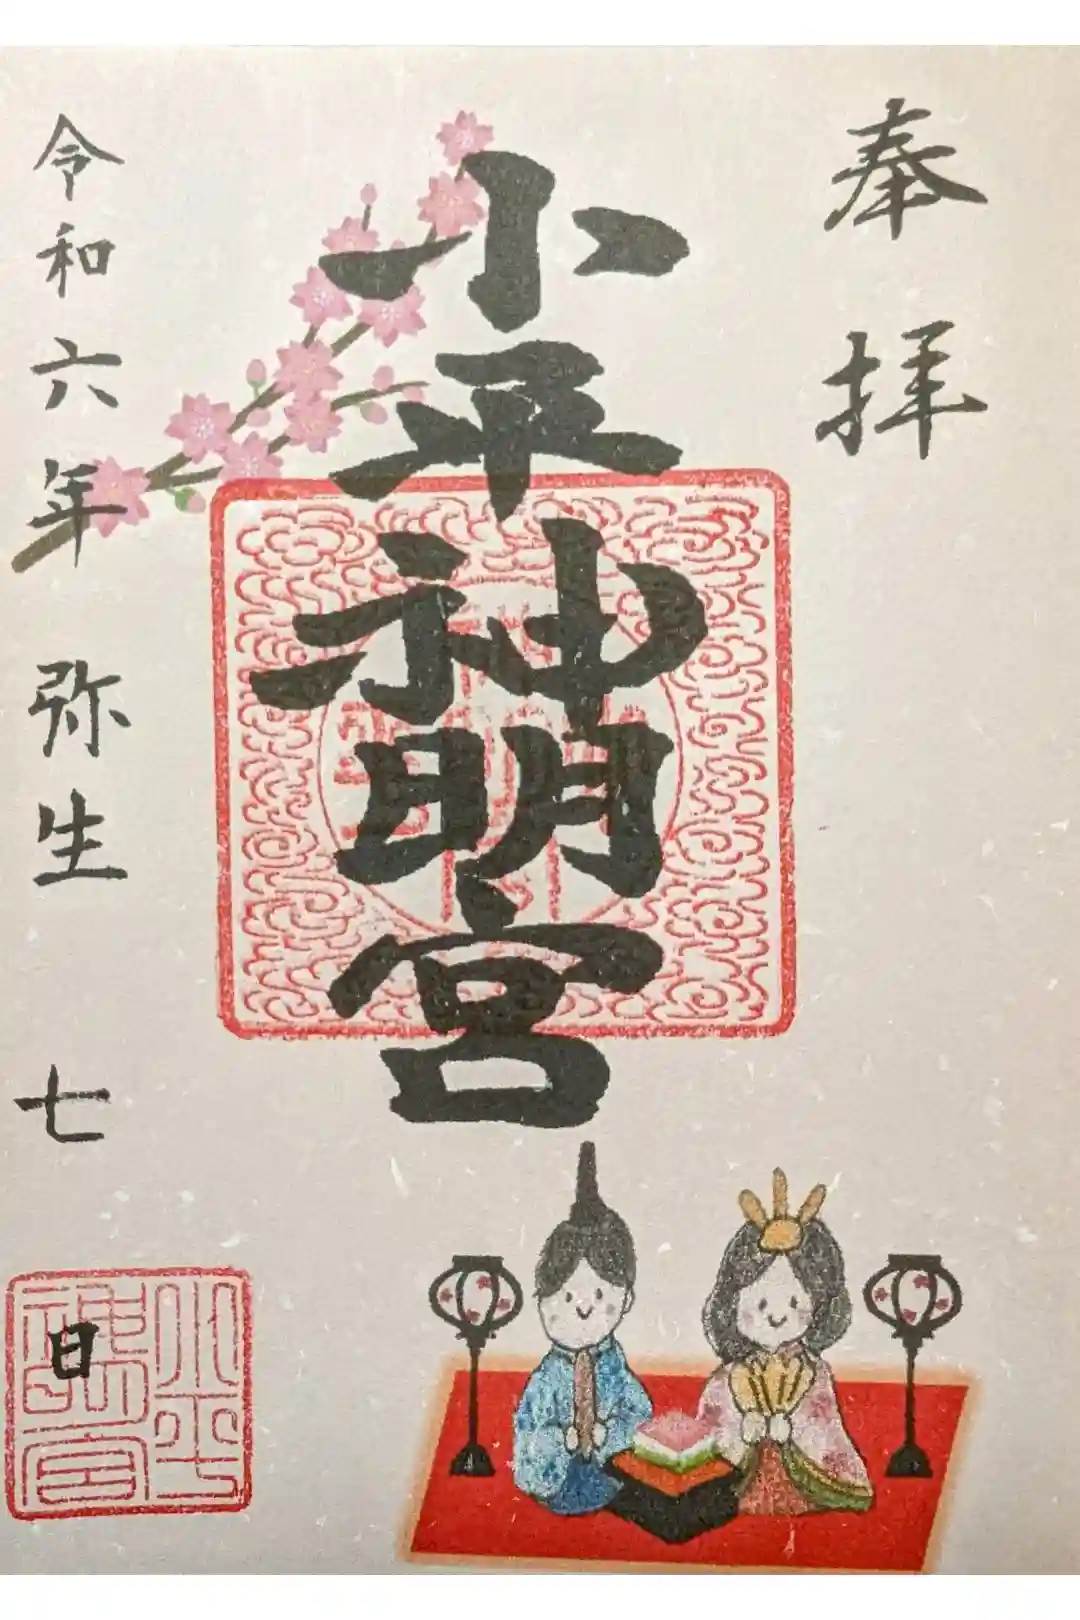 奉拝
小平神明宮
令和六年弥生七日
小平
神明宮